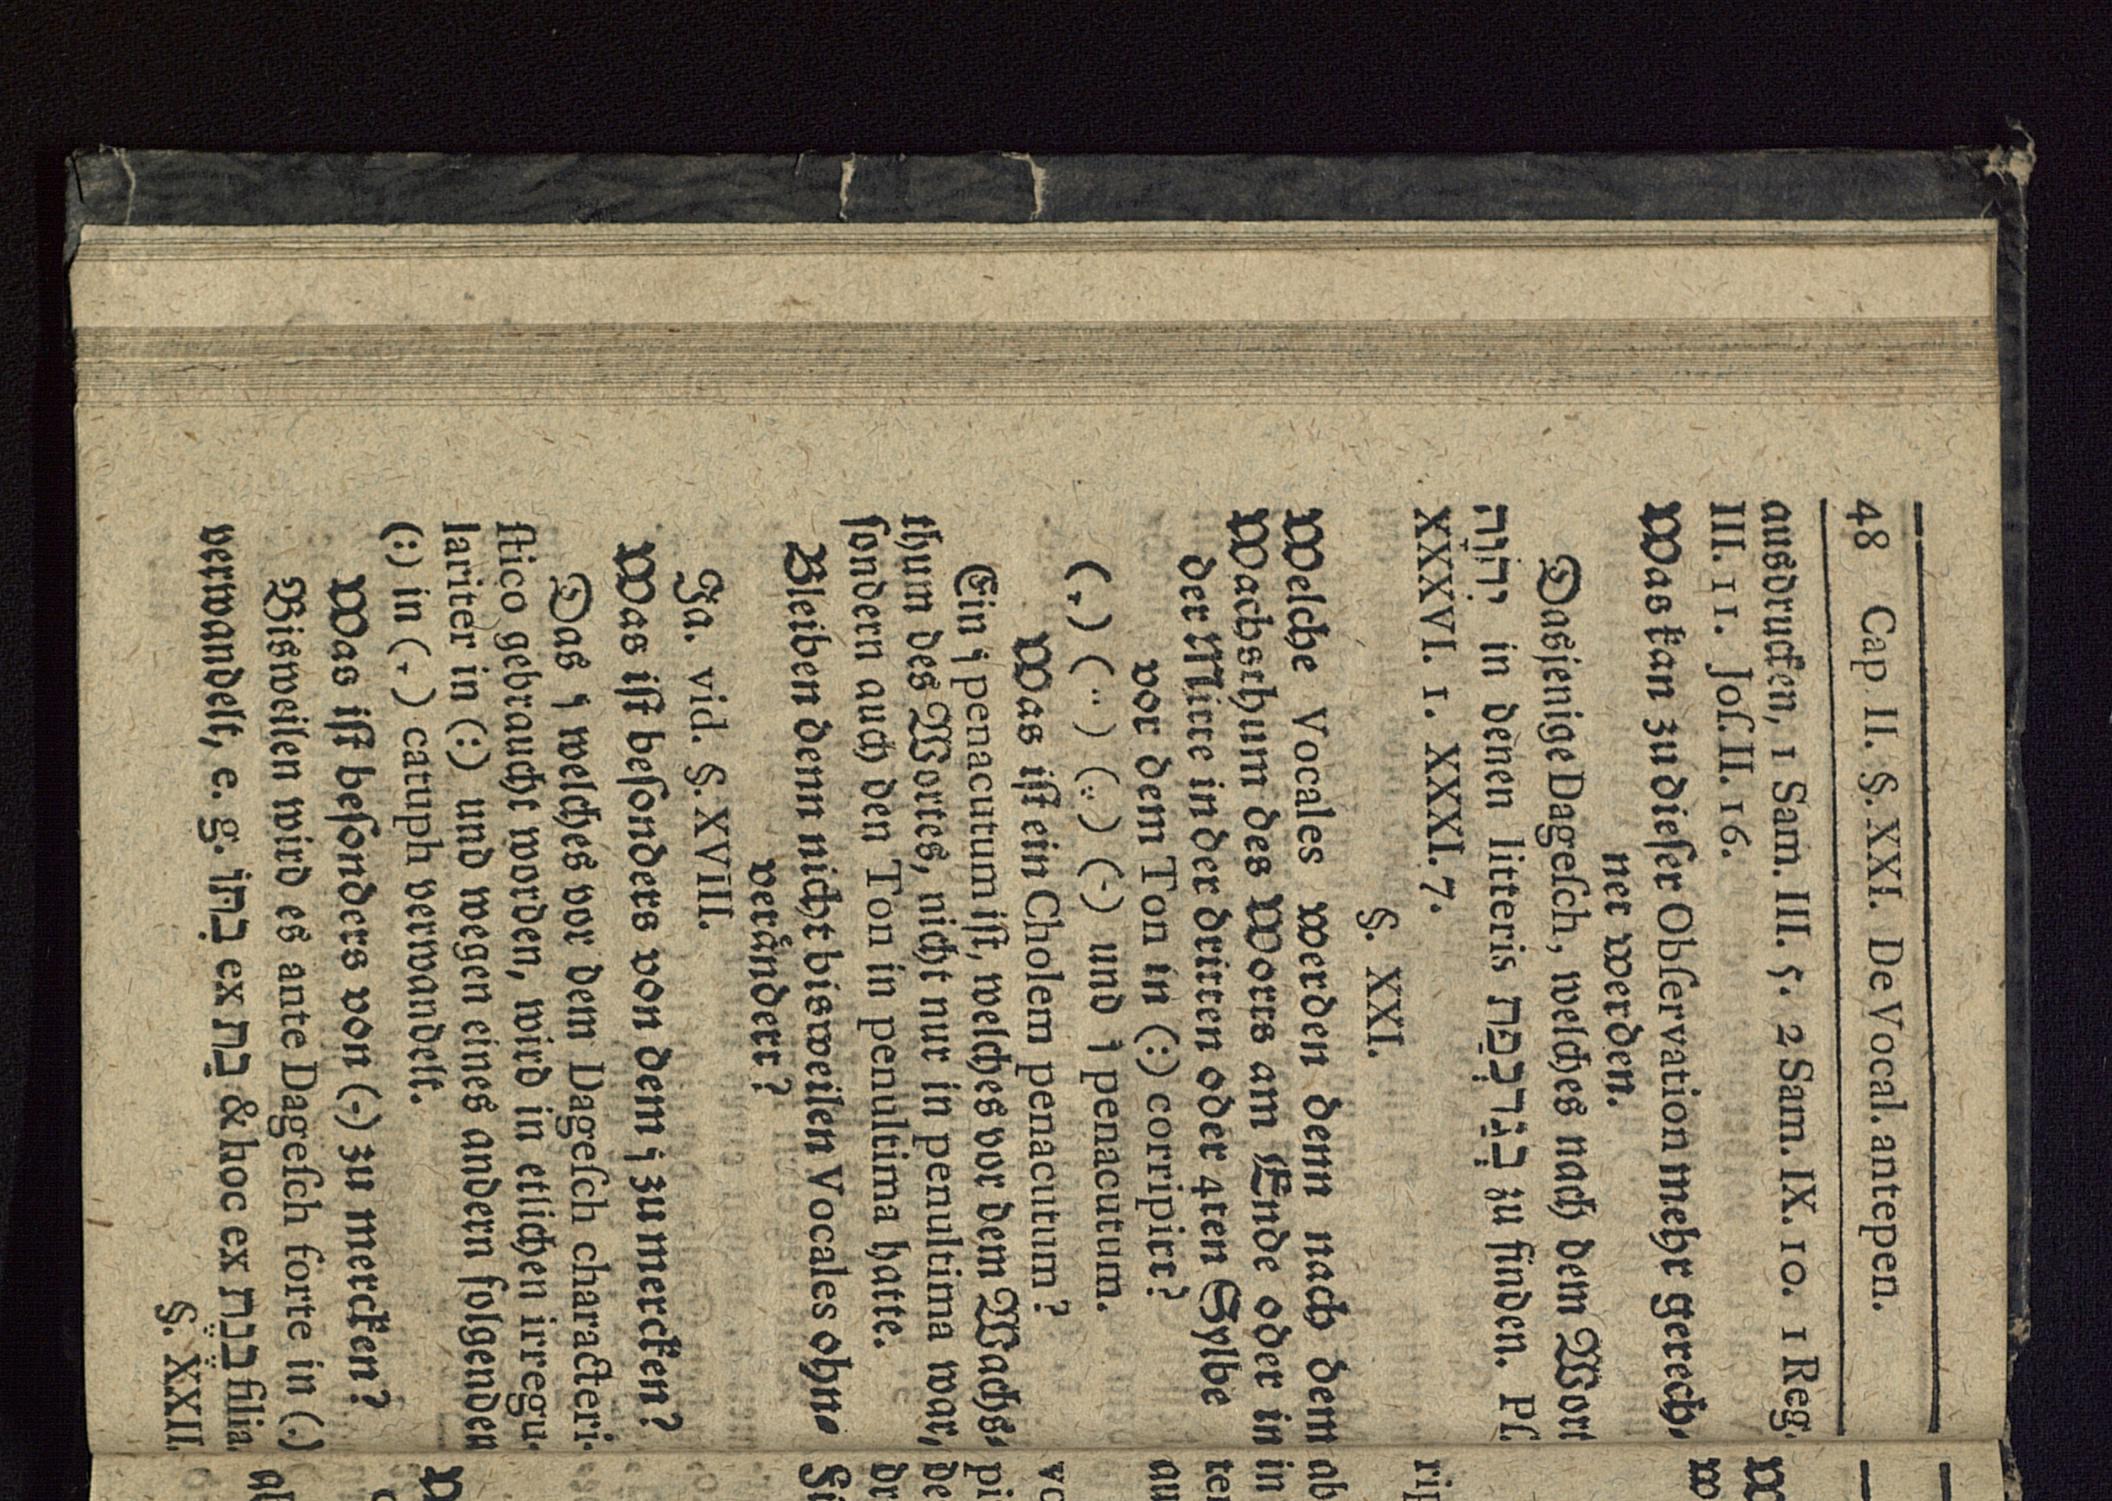 48 Cap II. §. XXI. De Vocal. antepen.
ausdrucken, 1 Sam. III. 5. 2 Sam. IX. 10. 1 Reg.
III. 11. Jos. II. 16.
Was kan zu dieser Observation mehr gerech-
net werden.
Dasjenige Dagesch, welches nach dem Wort
יְהֹוָה in denen litteris בְּגַדְכְּפַת zu finden. Ps.
XXXVI. 1. XXXI. 7.
§. XXI.
Welche Vocales werden denn nach dem
Wachsthum des Worts am Ende oder in
der Mitte in der dritten oder 4ten Sylbe
vor dem Ton in (:) corripirt?
(ָ) (ֵ) (ֶ) (ַ) und וֹ penacutum.
Was ist ein Cholem penacutum?
Ein וֹ penacutum ist, welches vor dem Wachs-
thum des Wortes, nicht nur in penultima war,
sondern auch den Ton in penultima hatte.
Bleiben denn nicht bisweilen Vocales ohn-
verändert?
Ja. vid. §. XVIII.
Was ist besonders von dem ו zu mercken?
Das ו welches vor dem Dagesch characteri-
stico gebraucht worden, wird in etlichen irregu-
lariter in (:) und wegen eines andern folgenden
(:) in (ָ) catuph verwandelt.
Was ist besonders von (ַ) zu mercken?
Bisweilen wird es ante Dagesch forte in (.)
verwandelt, e. g. בִּתּוֹ ex בַּת & hoc ex בֶּנֶת filia
§. XXII.